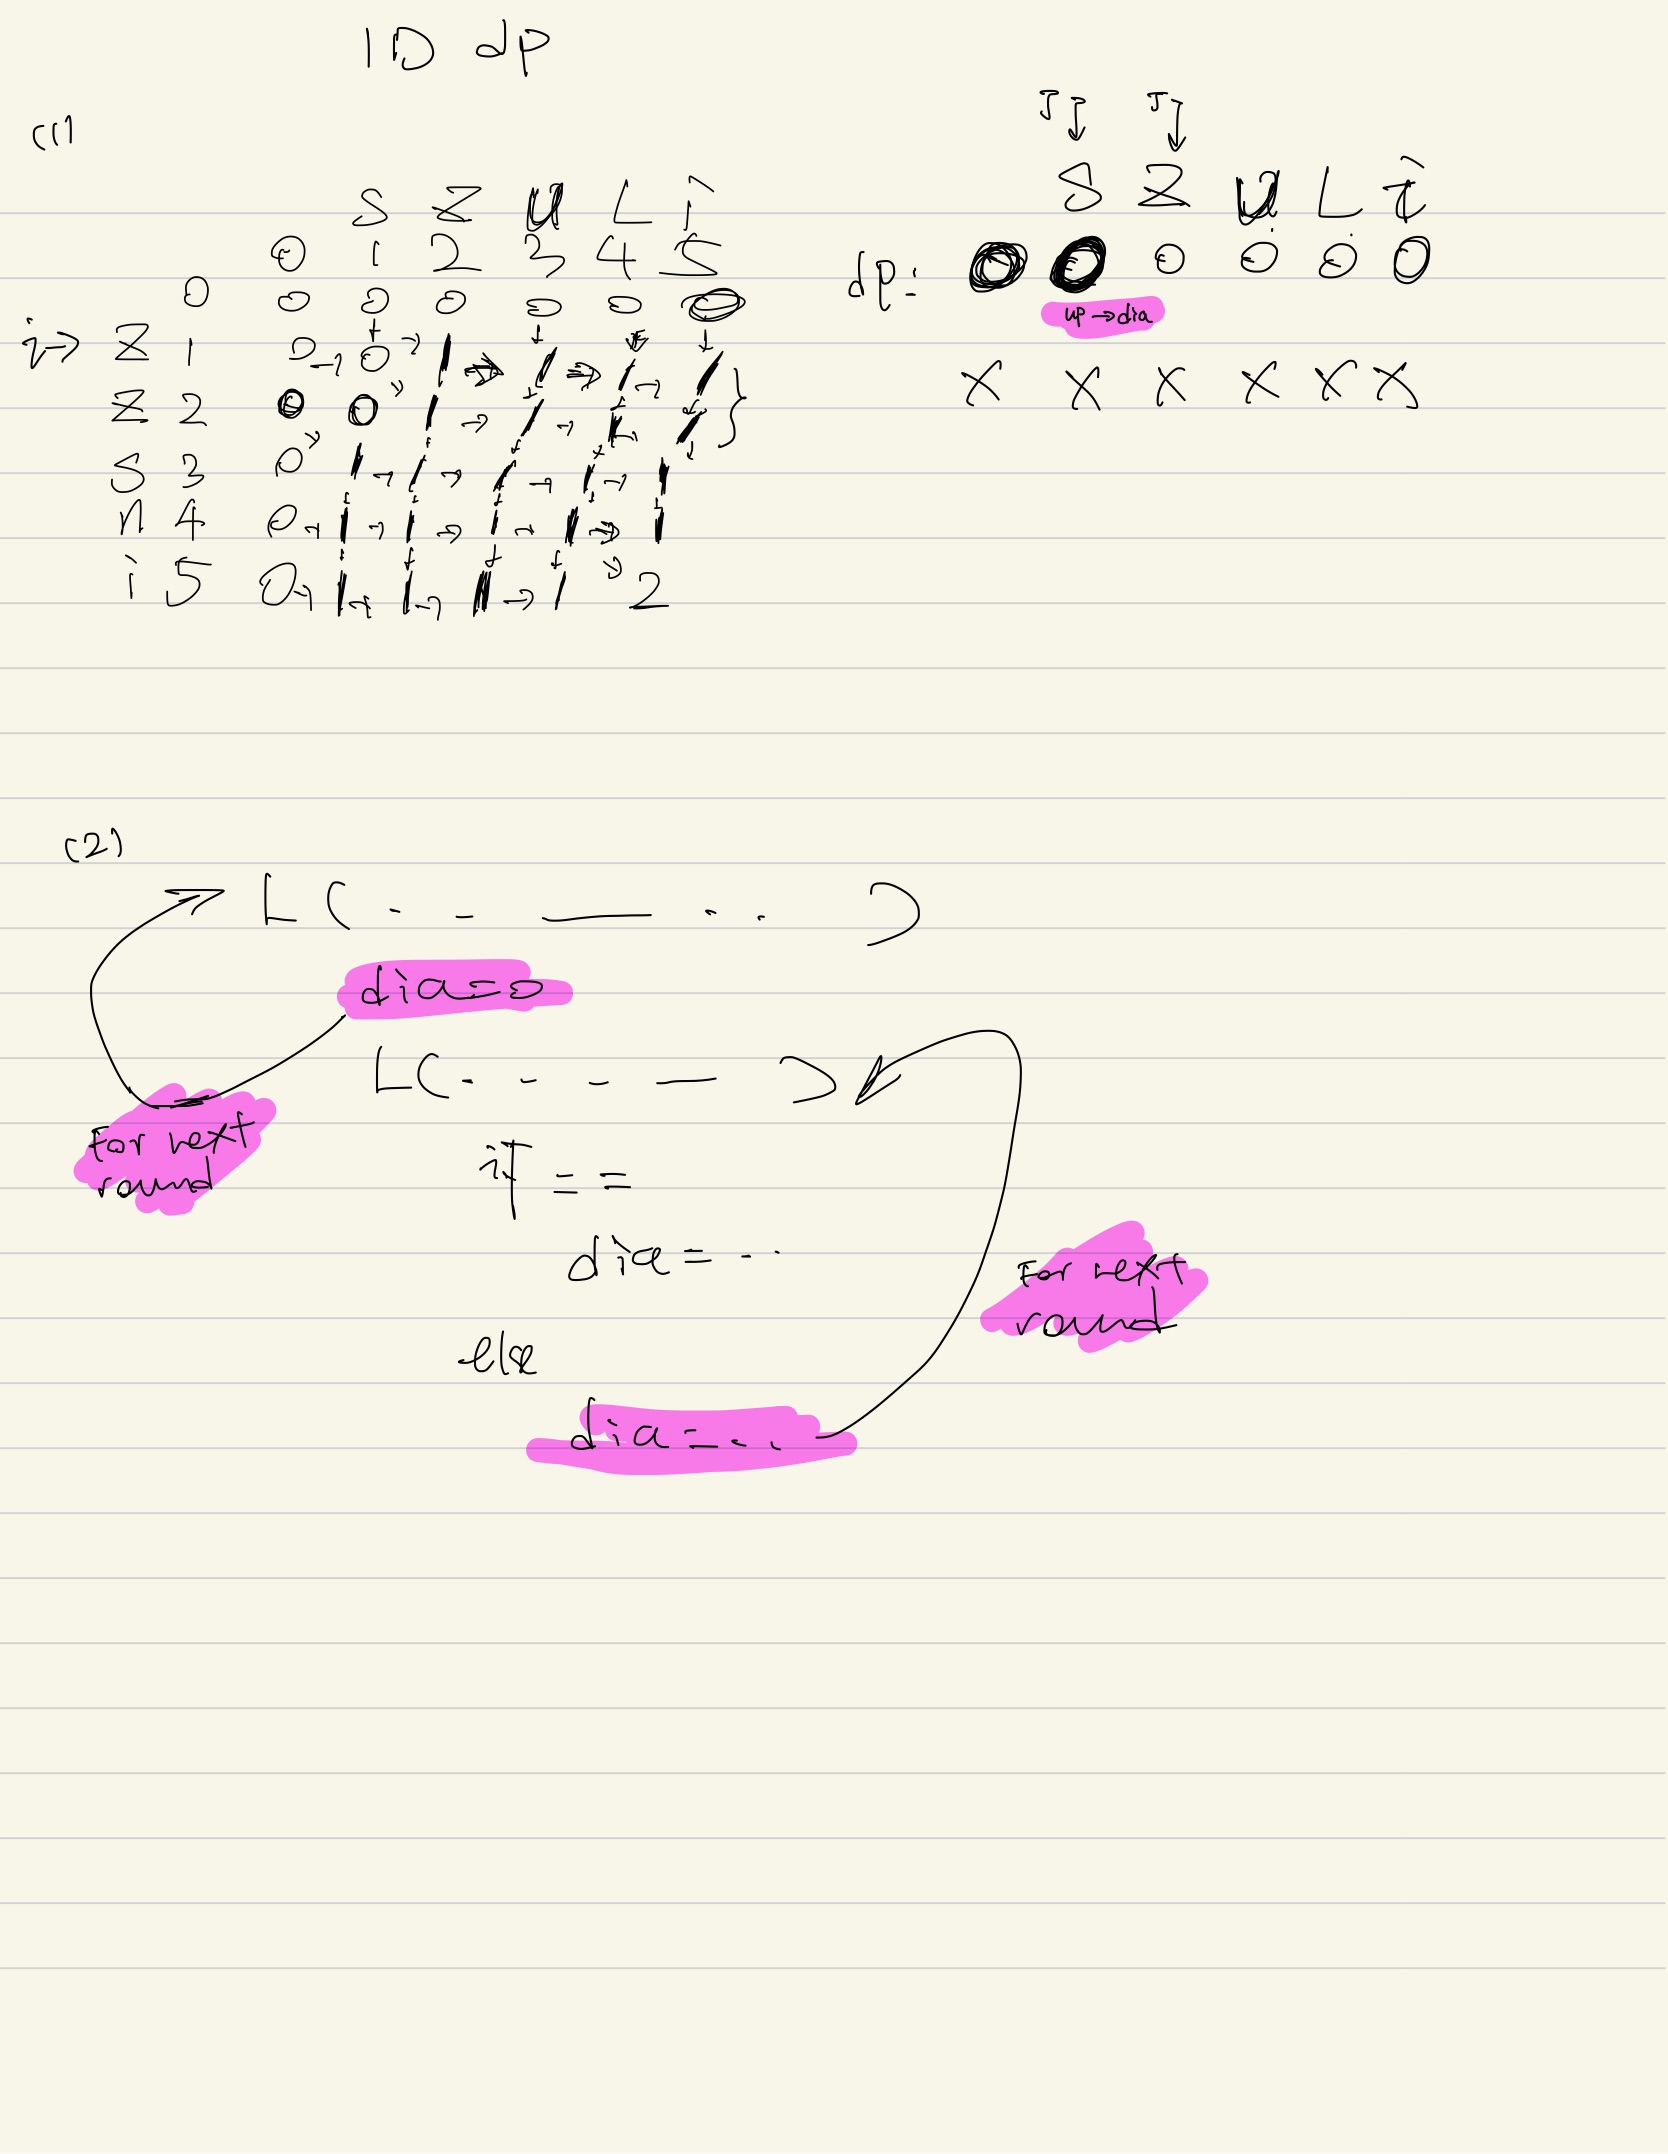 1D dp
(1)
S Z U L i
0 1 2 3 4 5
0 0 0 0 0 0 0
i → Z 1 0 → 0 1 → 1 → 1 → 1
Z 2 0 0 1 → 1 → 1 1
S 3 0 1 → 1 → 1 → 1 → 1
n 4 0 → 1 → 1 → 1 → 1 → 1
i 5 0 → 1 → 1 → 1 → 1 2
J ↓ J ↓
S Z U L i
dp: 0 0 0 0 0 0
up → dia
X X X X X X
(2)
L ( - - — . . )
dia = 0
L ( - - - — )
For next
round
if = =
dia = - -
else
dia = - -
For next
round